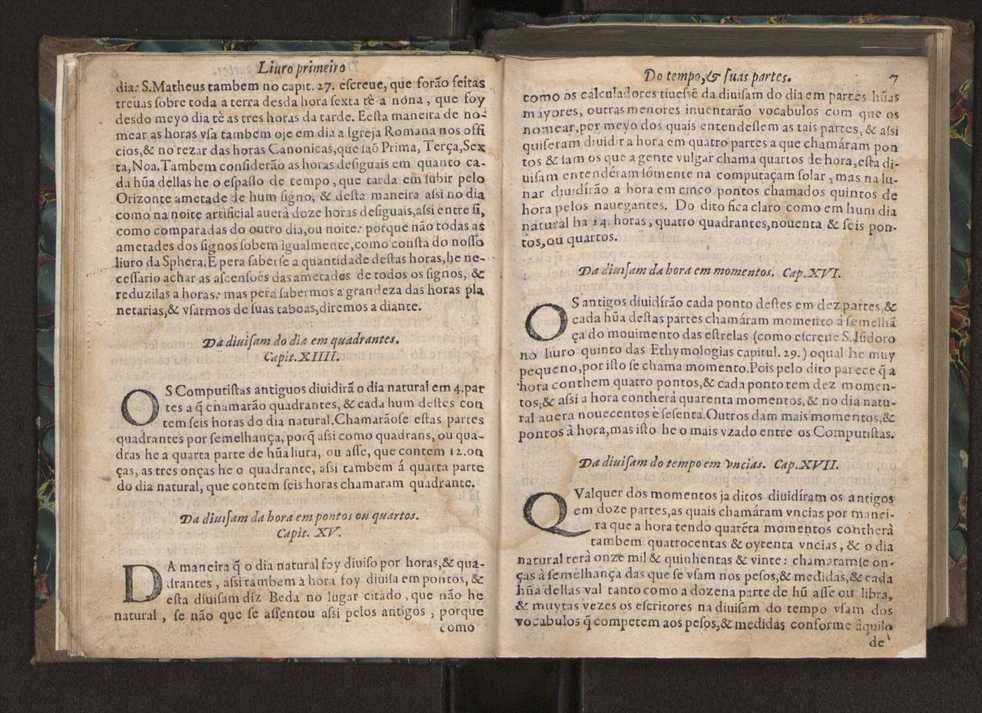 Liuro primeiro
dia: S.Matheus tambem no capit. 27. escreue, que forão feitas
treuas sobre toda a terra desda hora sexta tè a nóna, que foy
desdo meyo dia tè as tres horas da tarde. Eesta maneira de no-
mear as horas vsa tambem oje em dia a Igreja Romana nos offi
cios,& no rezar das horas Canonicas,que saõ Prima, Terça,Sex
ta,Noa.Tambem considerão as horas desiguais em quanto ca-
da hũa dellas he o espasso de tempo, que tarda em subir pelo
Orizonte ametade de hum signo, & desta maneira assi no dia
como na noite artificial auerà doze horas desiguais,assi entre si,
como comparadas do outro dia,ou noite: porque não todas as
ametades dos signos sobem igualmente,como consta do nosso
liuro da Sphera.E pera saberse a quantidade destas horas,he ne-
cessario achar as ascensões das ametades de todos os signos, &
reduzilas a horas: mas pera sabermos a grandeza das horas pla
netarias,& vsarmos de suas taboas,diremos a diante.
Da diuisam do dia em quadrantes.
Capit. XIIII.
OS Computistas antiguos diuidirã o dia natural em 4.par
tes a q̃ chamarão quadrantes, & cada hum destes con
tem seis horas do dia natural.Chamarãose estas partes
quadrantes por semelhança, porq̃ assi como quadrans, ou qua-
dras he a quarta parte de hũa liura, ou asse, que contem 12.on
ças, as tres onças he o quadrante, assi tambem á quarta parte
do dia natural, que contem seis horas chamaram quadrante.
Da diuisam da hora em pontos ou quartos.
Capit. XV.
DA maneira q̃ o dia natural foy diuiso por horas,& qua-
drantes, assi tambem à hora foy diuisa em pontos, &
esta diuisam diz Beda no lugar citado, que não he
natural, se não que se assentou assi pelos antigos, porque
como
Do tempo,& suas partes.
7
como os calculadores tiuessẽ da diuisam do dia em partes hũas
mayores, outras menores inuentarão vocabulos com que os
nomear,per meyo dos quais entendessem as tais partes, & assi
quiseram diuidir a hora em quatro partes a que chamáram pon
tos & sam os que a gente vulgar chama quartos de hora,esta di-
uisam entenderam sòmente na computaçam solar, mas na lu-
nar diuidírão a hora em cinco pontos chamados quintos de
hora pelos nauegantes. Do dito fica claro como em hum dia
natural ha 24. horas, quatro quadrantes,nouenta & seis pon-
tos,ou quartos.
Da diuisam da hora em momentos. Cap.XVI.
OS antigos diuidírão cada ponto destes em dez partes,&
cada hũa destas partes chamáram momento à semelhã
ça do mouimento das estrelas (como escreue S.Isidoro
no liuro quinto das Ethymologias capitul. 29.) oqual he muy
pequeno,por isto se chama momento.Pois pelo dito parece q̃ a
hora conthem quatro pontos,& cada ponto tem dez momen-
tos,& assi a hora contherà quarenta momentos,& no dia natu-
ral auera nouecentos e sesenta.Outros dam mais momentos,&
pontos à hora,mas isto he o mais vzado entre os Computistas.
Da diuisam do tempo em vncias. Cap.XVII.
QValquer dos momentos ja ditos diuidíram os antigos
em doze partes,as quais chamáram vncias por manei-
ra que a hora tendo quarẽta momentos contherà
tambem quatrocentas & oytenta vncias, & o dia
natural terà onze mil & quinhentas & vinte: chamaramse on-
ças à semelhança das que se vsam nos pesos,& medidas,& cada
hũa dellas val tanto como a dozena parte de hũ asse ou libra,
& muytas vezes os escritores na diuisam do tempo vsam dos
vocabulos q̃ competem aos pesos,& medidas conforme àquilo
de